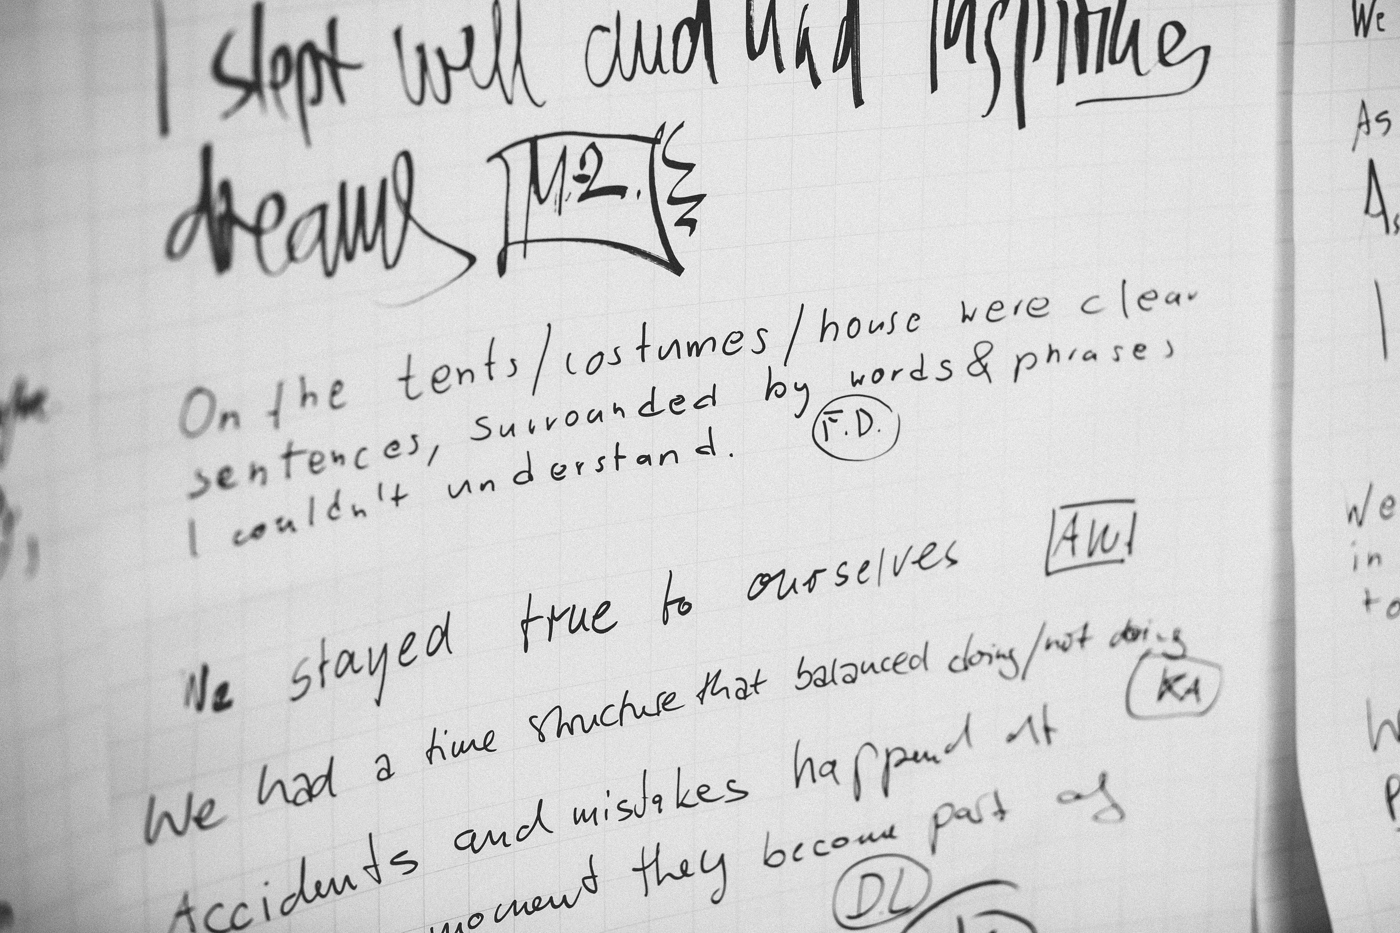 I slept well and had inspiring
dreams M.2.
On the tents/costumes/house were clear
sentences, surrounded by words & phrases
I couldn't understand. F.D.
We stayed true to ourselves AW
We had a time structure that balanced doing/not doing
KA
Accidents and mistakes happend at
moment they become part of
DL
We
As
We
in
to